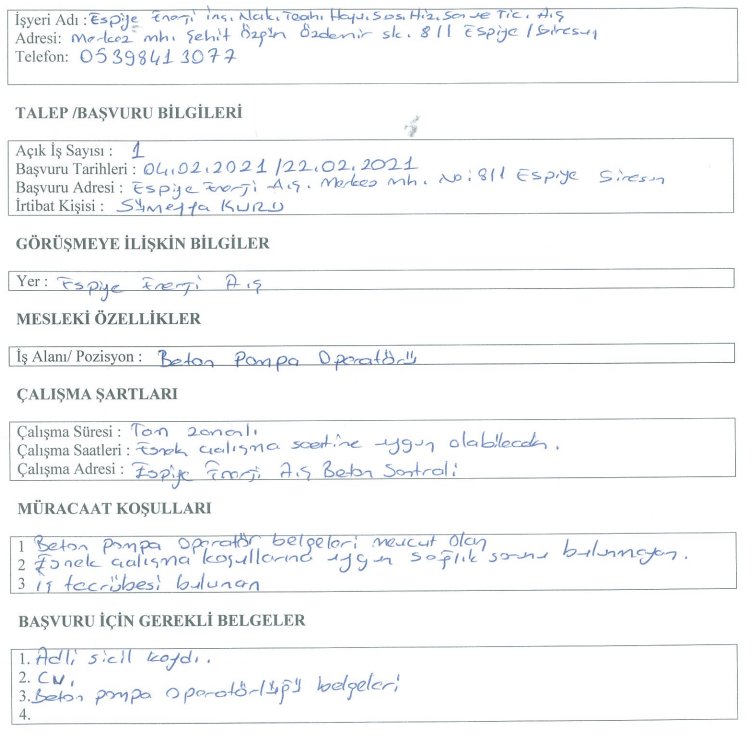 İşyeri Adı : Espiye Enerji inş. Nak. Teah. Hayv. Sos. Hiz. San ve Tic. A.Ş
Adresi: Merkez mh. Şehit Özgün Özdemir sk. 8/1 Espiye / Giresun
Telefon: 05398413077
TALEP /BAŞVURU BİLGİLERİ
Açık İş Sayısı : 1
Başvuru Tarihleri : 04.02.2021 /22.02.2021
Başvuru Adresi : Espiye Enerji A.Ş. Merkez mh. No:8/1 Espiye Giresun
İrtibat Kişisi : Sümeyya KURU
GÖRÜŞMEYE İLİŞKİN BİLGİLER
Yer : Espiye Enerji A.Ş
MESLEKİ ÖZELLİKLER
İş Alanı/ Pozisyon : Beton Pompa Operatörü
ÇALIŞMA ŞARTLARI
Çalışma Süresi : Tam zamanlı
Çalışma Saatleri : Esnek çalışma saatine uygun olabilecek.
Çalışma Adresi : Espiye Enerji A.Ş Beton Santrali
MÜRACAAT KOŞULLARI
1 Beton pompa operatör belgeleri mevcut olan
2 Esnek çalışma koşullarına uygun sağlık sorunu bulunmayan.
3 iş tecrübesi bulunan
BAŞVURU İÇİN GEREKLİ BELGELER
1. Adli sicil kaydı.
2. CV.
3. Beton pompa operatörlüğü belgeleri
4.